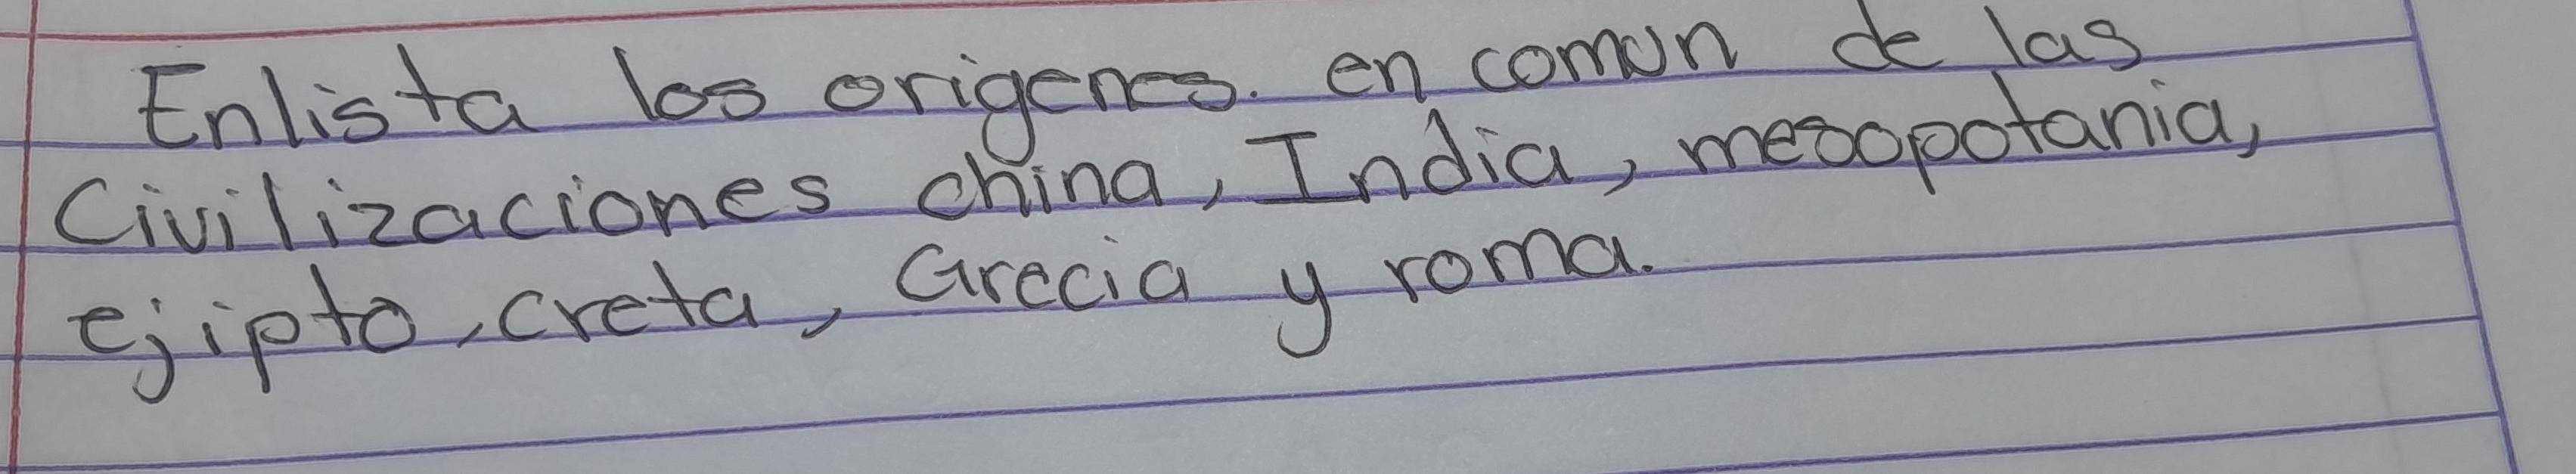 Enlista los origenes. en comun de las
Civilizaciones china, India, mesopotania,
ejipto, creta, Grecia y roma.